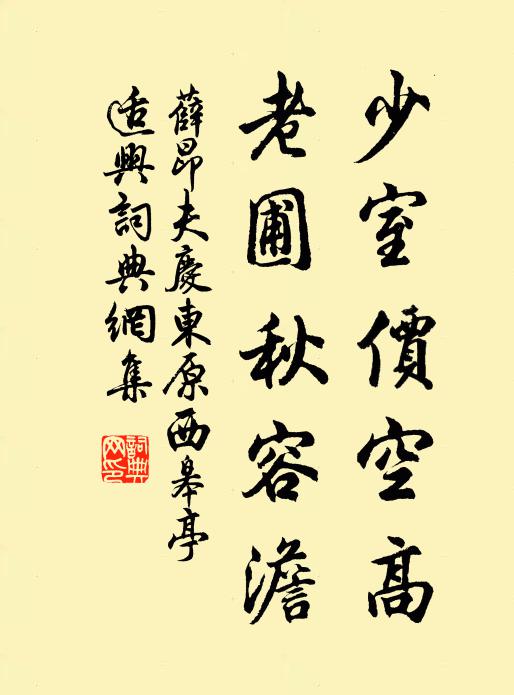 少室價空高
老圃秋容澹
薛昂夫慶東原西皋亭
适興詞典網集
詞典网印